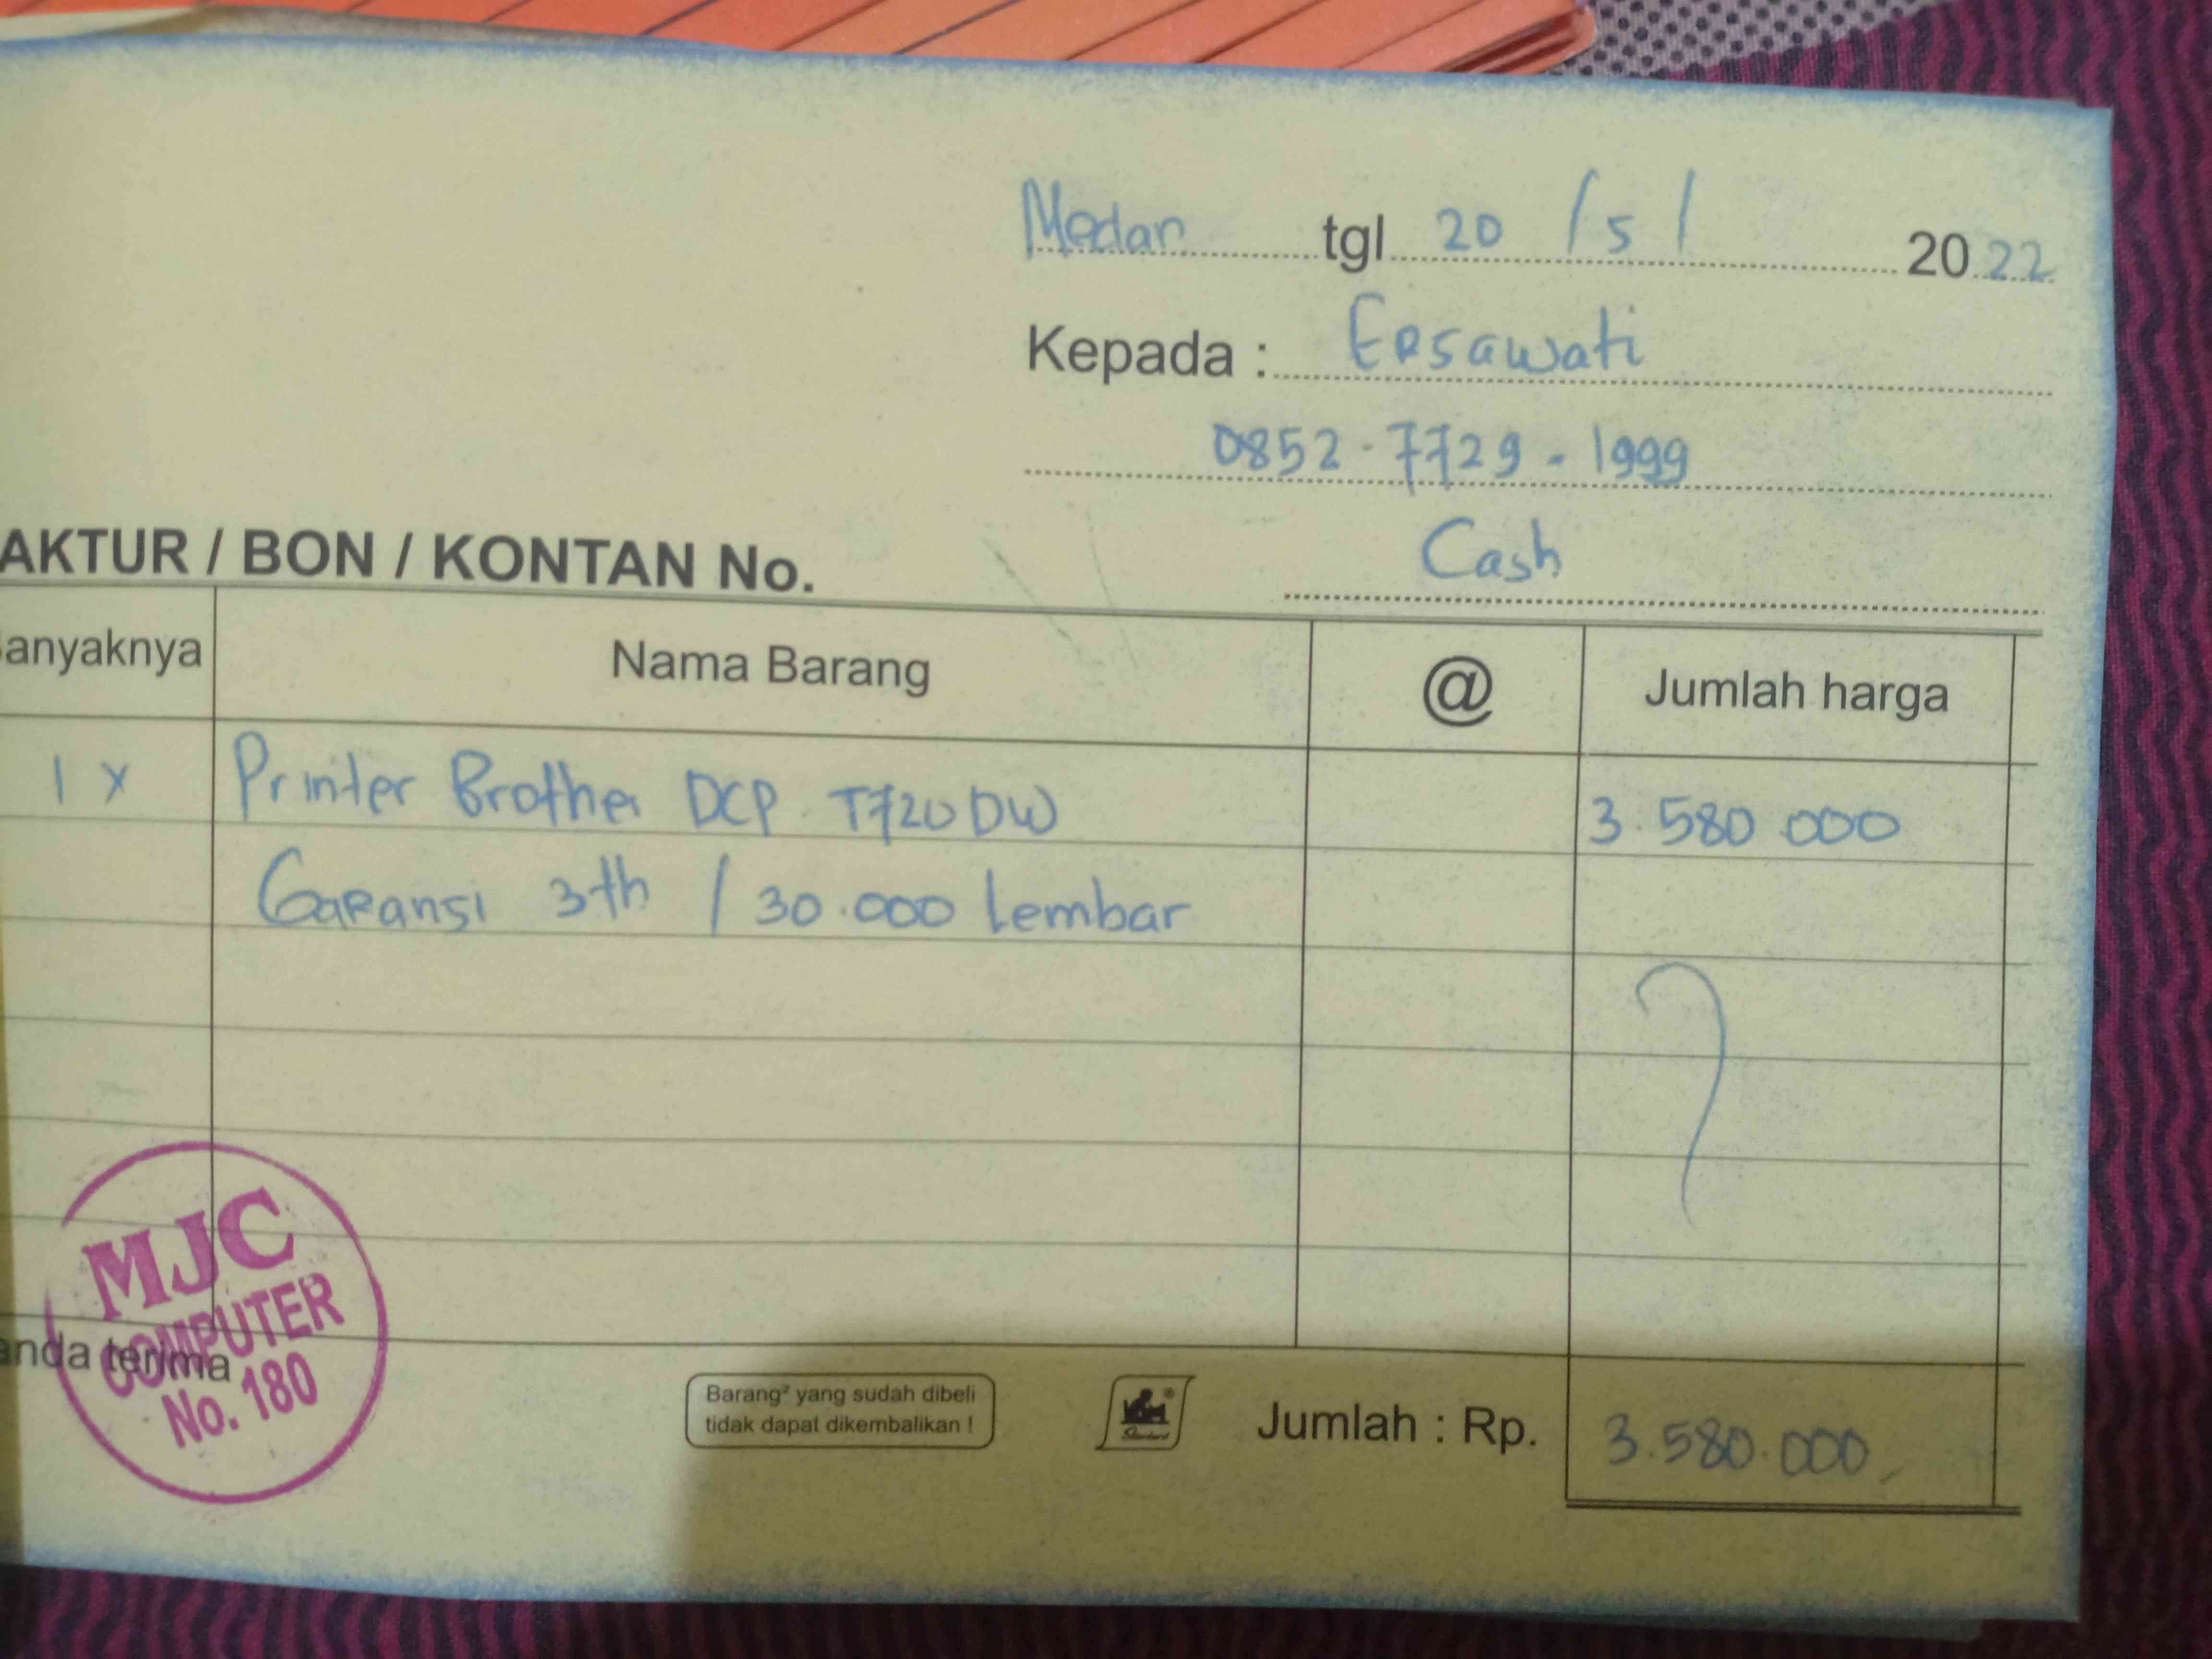 Medan tgl 20 / 5 / 2022
Kepada : Ersawati
0852-7729-1999
AKTUR / BON / KONTAN No. Cash
anyaknya Nama Barang @ Jumlah harga
1 x Printer Brother DCP T720DW 3.580.000
Garansi 3th / 30.000 lembar
MJC
COMPUTER
No. 180
anda terima
Barang² yang sudah dibeli
tidak dapat dikembalikan !
Standard
Jumlah : Rp. 3.580.000,